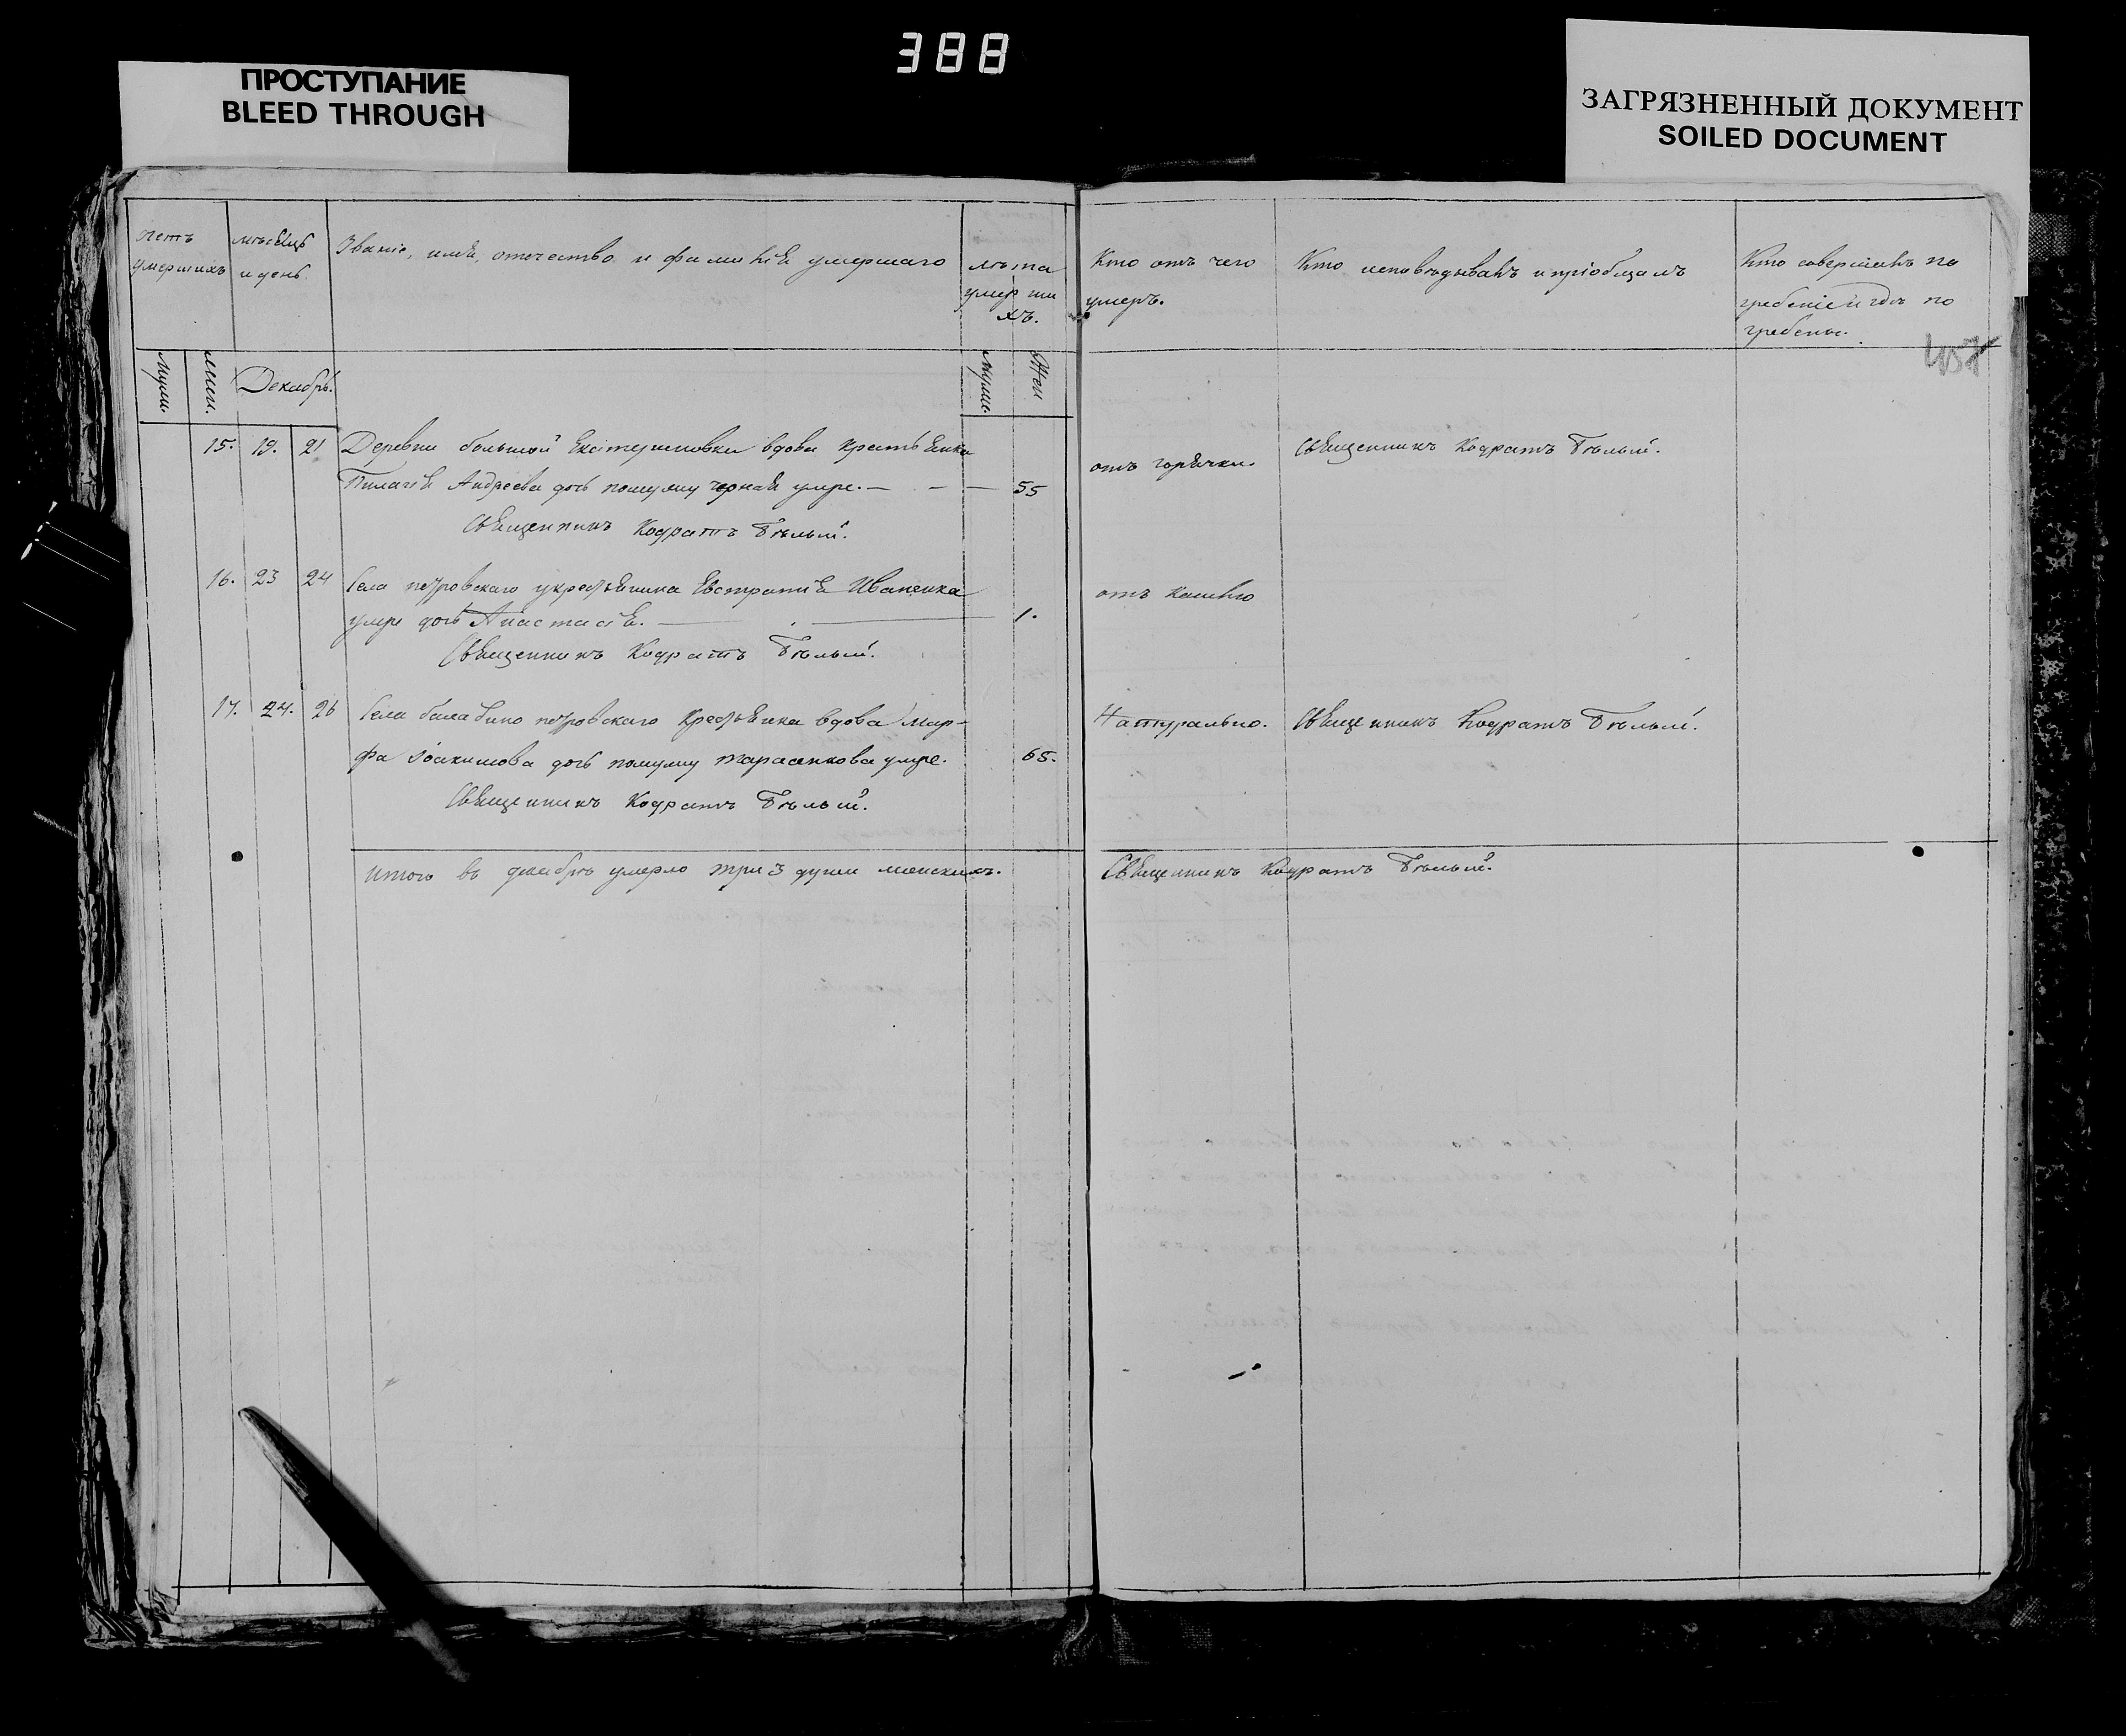 388
ПРОСТУПАНИЕ
BLEED THROUGH
ЗАГРЯЗНЕННЫЙ ДОКУМЕНТ
SOILED DOCUMENT
счетъ умершихъ
мѣсяцъ и день.
Званіе, имя, отечество и фамилія умершаго
лѣта умершихъ.
Кто отъ чего умеръ.
Кто исповѣдывалъ и пріобщалъ
Кто совершалъ погребеніе и гдѣ погребены.
457
Декабрь.
15. 19. 21 Деревни большой Екатериновки вдова крестьянка
Андреева дочь помужу черная умре. — 55
отъ горячки. Священникъ Кодратъ Бѣлый.
Священникъ Кодратъ Бѣлый.
16. 23 24 Села петровскаго у крестьянина Евстратія Иваненка
умре дочь Анастасія. — 1.
отъ кашлю
Священникъ Кодратъ Бѣлый.
17. 24. 26 Села балабино петровскаго крестьянка вдова Мар-
фа Іоакимова дочь помужу тарасенкова умре. 65.
Натурально. Священникъ Кодратъ Бѣлый.
Священникъ Кодратъ Бѣлый.
Итого въ декабрѣ умерло три 3 души женскихъ.
Священникъ Кодратъ Бѣлый.